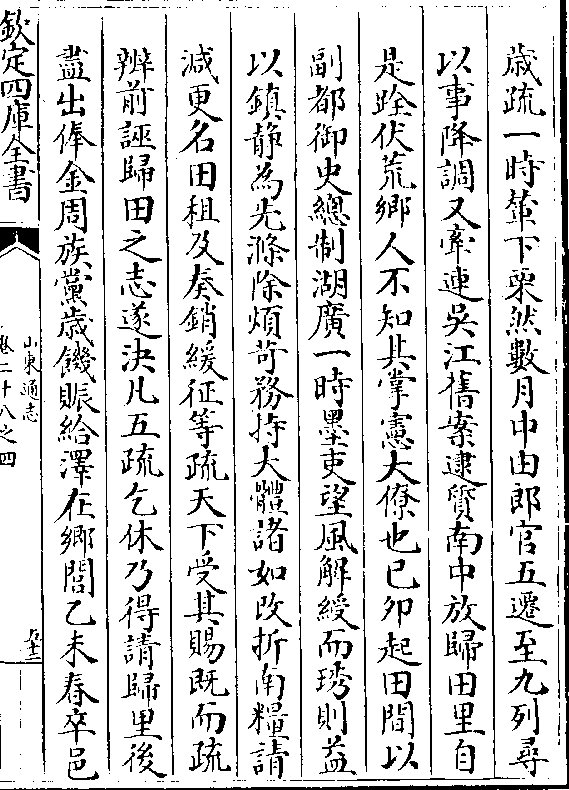 歳疏一時輦下栗然數月中由郎官五遷至九列尋
以事降調又牽連吳江舊案逮質南中放歸田里自
是跧伏荒鄉人不知其掌憲大僚也已卯起田間以
副都御史總制湖廣一時墨吏望風解綬而琇則益
以鎮静為先滌除煩苛務持大體諸如改折南糧請
減更名田租及奏銷緩征等疏天下受其賜既而疏
辨前誣歸田之志遂決凡五疏乞休乃得請歸里後
盡出俸金周族黨歳饑賑給澤在鄉閭乙未春卒邑
欽定四庫全書
山東通志
卷二十八之四